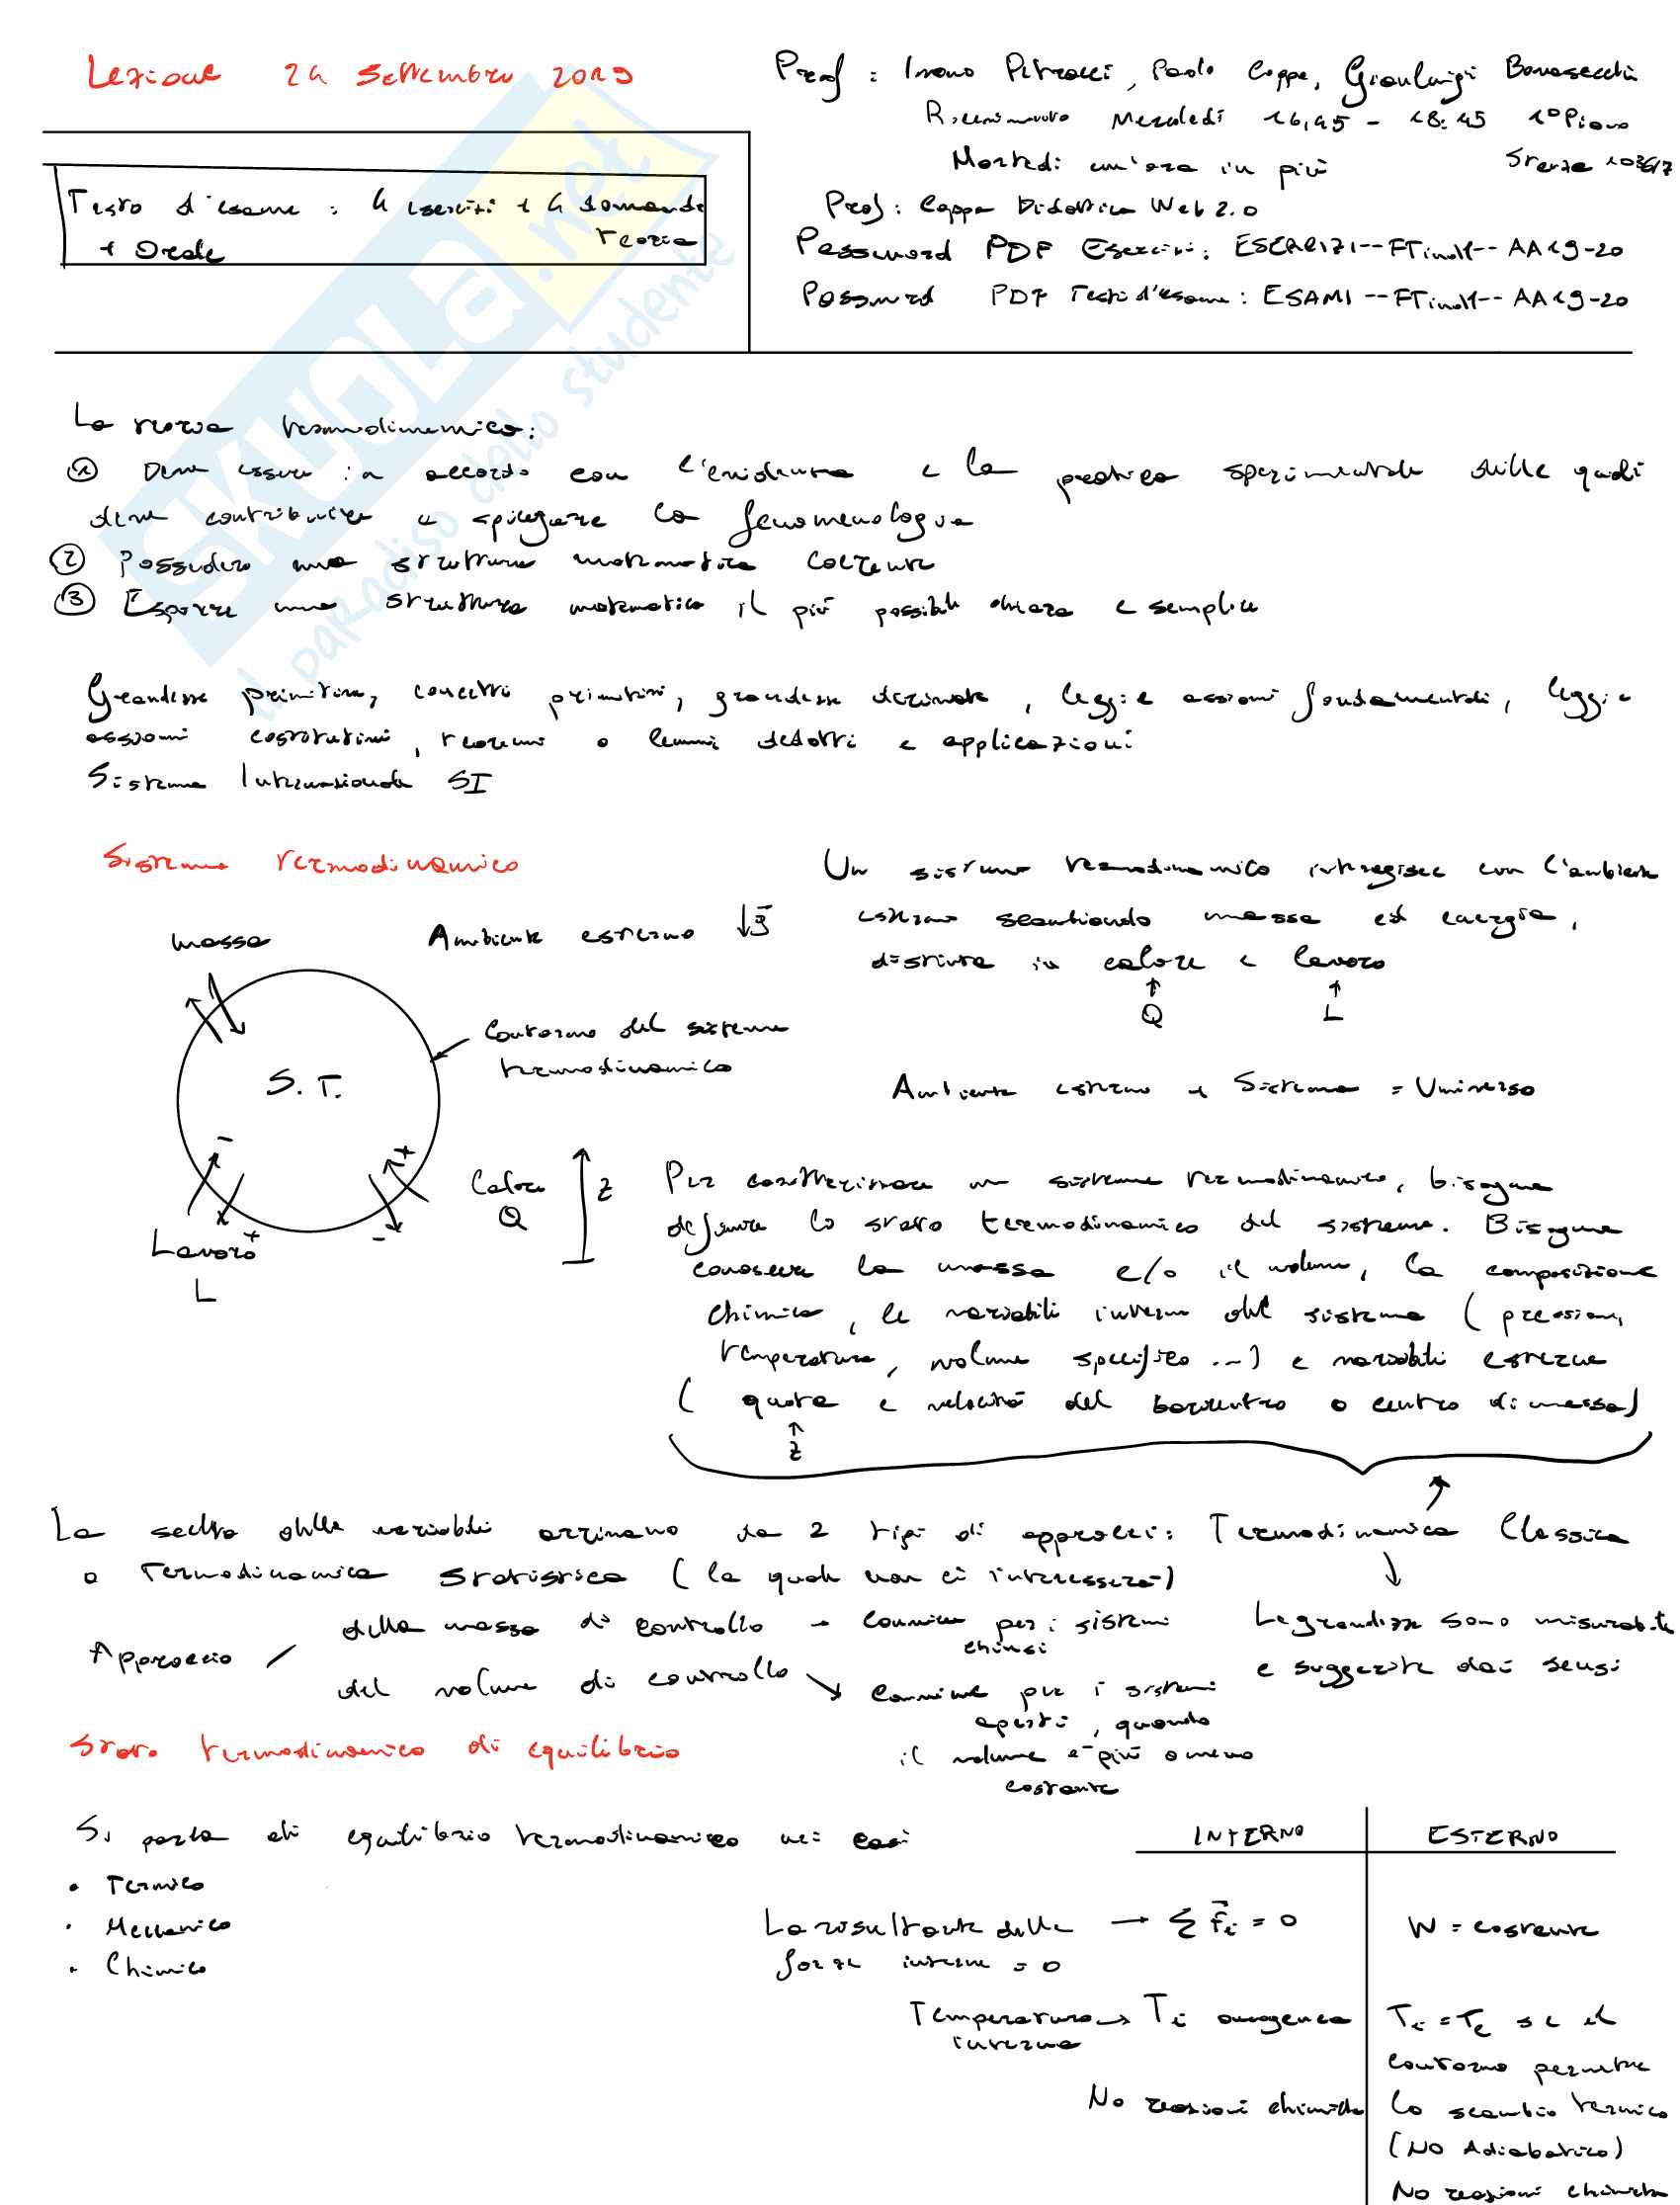 Lezione 24 Settembre 2019
Prof : Ivano Petracci, Paolo Coppa, Gianluigi Bovesecchi
Ricevimento Mercoledì 16,45 - 18:45 1° Piano
Martedì un'ora in più Stanza
Testo d'esame : 4 esercizi + 4 domande
teoria
+ Orale
Prof: Coppa Didattica Web 2.0
Password PDF Esercizi: ESERCIZI--FTinMM--AA19-20
Password PDF Testi d'esame: ESAMI--FTinMM--AA19-20
SKUOLa.net
il paradiso dello studente
La teoria termodinamica:
① Deve essere in accordo con l'evidenza e la pratica sperimentale delle quali
deve contribuire a spiegare la fenomenologia
② Possedere una struttura matematica coerente
③ Esporre una struttura matematica il più possibile chiara e semplice
Grandezze primitive, concetti primitivi, grandezze derivate, leggi e assiomi fondamentali, leggi e
assiomi costitutivi, teoremi o lemmi dedotti e applicazioni
Sistema Internazionale SI
Sistema termodinamico
Un sistema termodinamico interagisce con l'ambiente
esterno scambiando massa ed energia,
distinta in calore e lavoro
Q L
massa
Ambiente esterno ↓g
Contorno del sistema
termodinamico
S.T.
Ambiente esterno + Sistema = Universo
- + + -
Lavoro
L
Calore
Q
z
Per caratterizzare un sistema termodinamico, bisogna
definire lo stato termodinamico del sistema. Bisogna
conoscere la massa e/o il volume, la composizione
chimica, le variabili interne del sistema (pressione,
temperatura, volume specifico ...) e variabili esterne
(quota e velocità del baricentro o centro di massa)
z
La scelta delle variabili arrivano da 2 tipi di approcci: Termodinamica Classica
o Termodinamica Statistica (la quale non ci interesserà)
Approccio / della massa di controllo → Conviene per i sistemi
chiusi
del volume di controllo ↘ Conviene per i sistemi
aperti, quando
il volume è più o meno
costante
Le grandezze sono misurabili
e suggerite dai sensi
Stato termodinamico di equilibrio
Si parla di equilibrio termodinamico nei casi
• Termico
• Meccanico
• Chimico
INTERNO ESTERNO
La risultante delle → Σ f⃗i = 0 W = costante
forze interne = 0
Temperatura → Ti omogenea Ti = Te se il
interna
contorno permette
No reazioni chimiche lo scambio termico
(No Adiabatico)
No reazioni chimiche